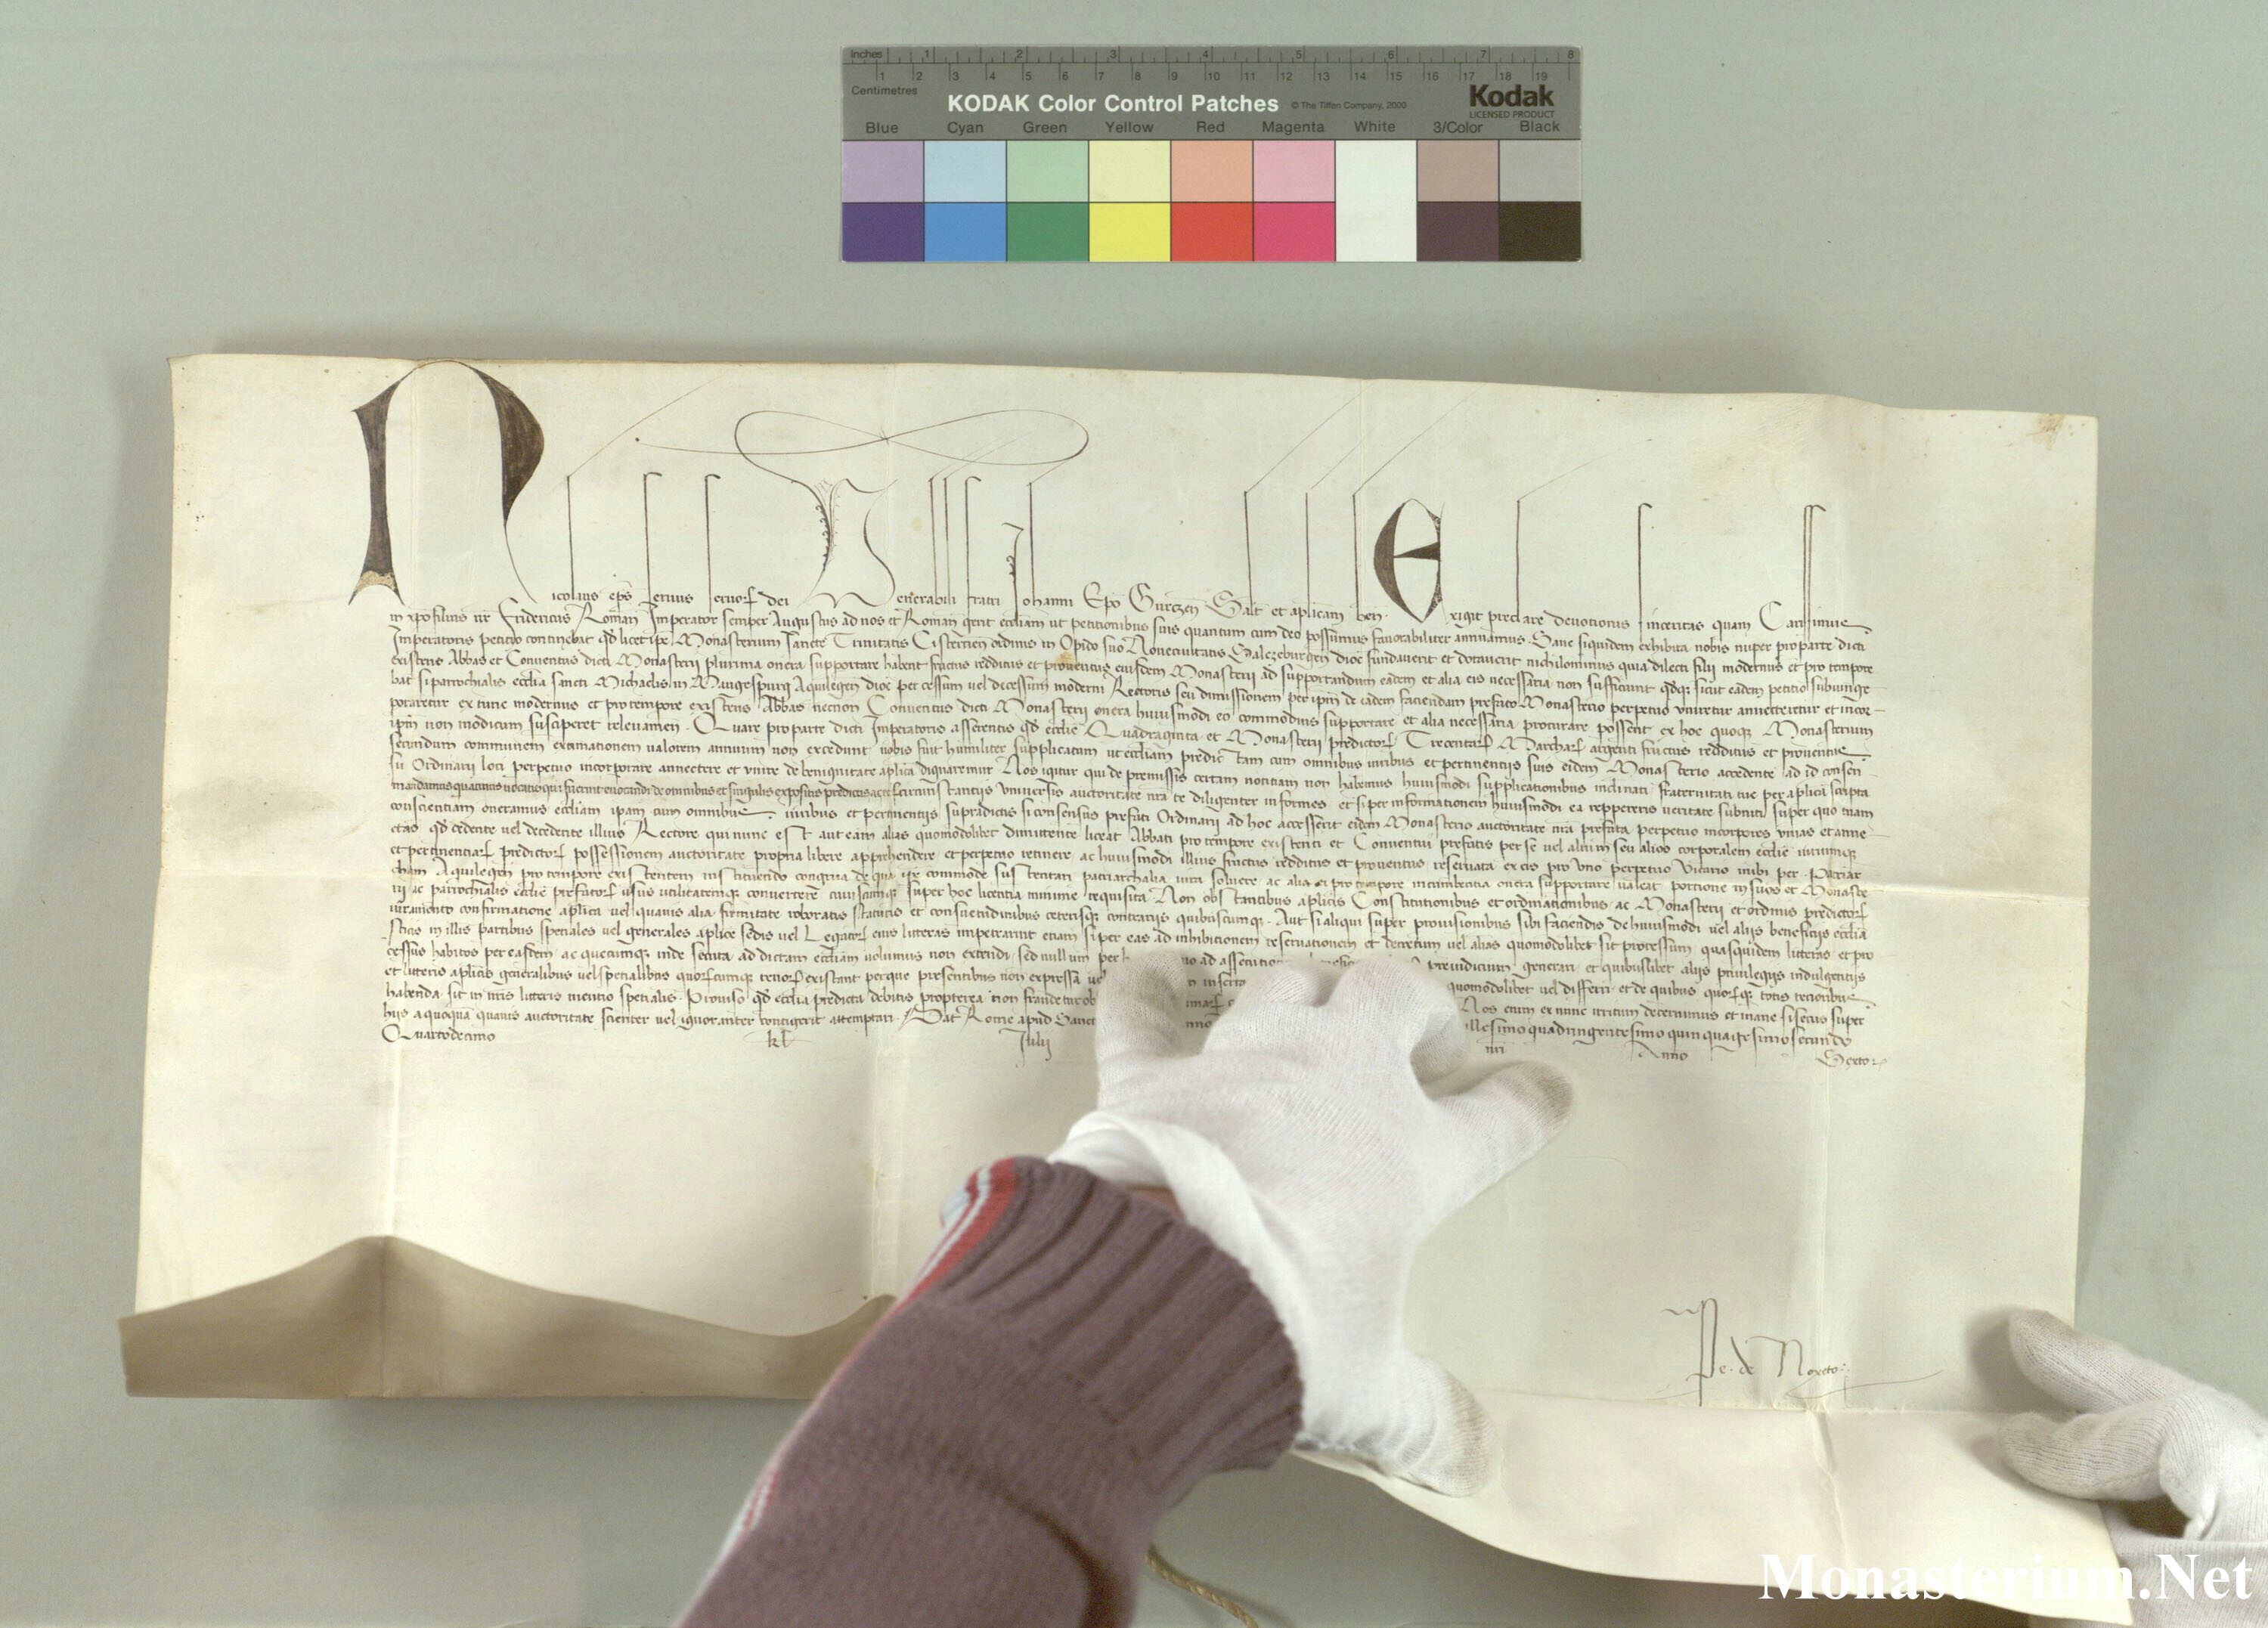 Inches 1 2 3 4 5 6 7 8
1 2 3 4 5 6 7 8 9 10 11 12 13 14 15 16 17 18 19
Centimetres
KODAK Color Control Patches © The Tiffen Company, 2000 Kodak
LICENSED PRODUCT
Blue Cyan Green Yellow Red Magenta White 3/Color Black
Nicolaus eps servus servor dei Venerabili fratri Johanni Epo Gurczen Salt et aplicam ben. Exigit preclare devotionis sinceritas quam Carissimus
in xpo filius nr Fridericus Roman Imperator semper Augustus ad nos et Roman gerit eccliam ut petitionibus suis quantum cum deo possumus favorabiliter annuamus. Sane siquidem exhibita nobis nuper pro parte dicti
Imperatoris petitio continebat qd licet ipe Monasterium sancte Trinitatis Cistercien ordinis in Opido suo Novecivitatis Salczeburgen dioc fundaverit et dotaverit nichilominus quia dilecti filii modernus et pro tempore
existens Abbas et Conventus dicti Monasterii plurima onera supportare habent fructus redditus et proventus eiusdem Monasterii ad supportandum eadem et alia eis necessaria non sufficiunt qdqz sicut eadem petitio subiunge
bat si parrochialis ecclia sancti Michaelis in Mangespurg Aquilegen dioc per cessum vel decessum moderni Rectoris seu dimissionem per ipm de eadem faciendam prefato Monasterio perpetuo uniretur annecteretur et incor
poraretur ex tunc modernus et pro tempore existens Abbas necnon Conventus dicti Monasterii onera huiusmodi eo commodius supportare et alia necessaria procurare possent ex hoc quoqz Monasterium
ipm non modicum susciperet relevamen. Quare pro parte dicti Imperatoris asserentis qd ecclie Quadraginta et Monasterii predictor Trecentar Marchar argenti fructus redditus et proventus
secundum communem extimationem valorem annuum non excedunt nobis fuit humiliter supplicatum ut eccliam predictam cum omnibus iuribus et pertinentiis suis eidem Monasterio accedente ad id consen
su Ordinarii loci perpetuo incorporare annectere et unire de benignitate aplica dignaremur Nos igitur qui de premissis certam notitiam non habemus huiusmodi supplicationibus inclinati fraternitati tue per aplica scripta
mandamus quatinus vocatis qui fuerint evocandi de omnibus et singulis expositis predictis circumstantiis universis auctoritate nra te diligenter informes et si per informationem huiusmodi ea reppereris veritate subniti super quo tuam
conscientiam oneramus eccliam ipam cum omnibus iuribus et pertinentiis supradictis si consensus prefati Ordinarii ad hoc accesserit eidem Monasterio auctoritate nra prefata perpetuo incorpores unias et anne
ctas qd cedente vel decedente illius Rectore qui nunc est aut eam alias quomodolibet dimittente liceat Abbati pro tempore existenti et Conventui prefatis per se vel alium seu alios corporalem ecclie iuriumqz
et pertinentiar predictor possessionem auctoritate propria libere apprehendere et perpetuo retinere ac huiusmodi illius fructus redditus et proventus reservata ex eis pro uno perpetuo Vicario inibi per Patriar
cham Aquilegen pro tempore existentem instituendo congrua de qua commode sustentari patriarchalia iura solvere ac alia pro tempore incumbentia onera supportare valeat portione in suos et Monaste
rii ac parrochialis ecclie prefator usus utilitatemqz convertere cuiuscumqz super hoc licentia minime requisita. Non obstantibus aplicis Constitutionibus et ordinationibus ac Monasterii et ordinis predictor
iuramento confirmatione aplica vel quavis alia firmitate roboratis statutis et consuetudinibus ceterisqz contrariis quibuscumqz. Aut si aliqui super provisionibus sibi faciendis de huiusmodi vel aliis beneficiis ecclia
sticis in illis partibus speciales vel generales aplice sedis vel Legator eius litteras impetrarint etiam si per eas ad inhibitionem reservationem et decretum vel alias quomodolibet sit processum quasquidem litteras et pro
cessus habitos per easdem ac quecumqz inde secuta ad dictam eccliam volumus non extendi sed nullum per ad assecu preiudicium generari et quibuslibet aliis privilegiis indulgentiis
et litteris aplicis generalibus vel specialibus quorcumqz tenor existant perque presentibus non expressa ve n inserta quomodolibet vel differri et de quibus quorqz totis tenoribus
habenda sit in nris litteris mentio specialis. Proviso qd ecclia predicta debitis propterea non fraudetur ob Nos enim ex nunc irritum decernimus et inane si secus super
hiis a quoqua quavis auctoritate scienter vel ignoranter contigerit attemptari. Dat Rome apud Sanct nno illesimo quadringentesimo quinquagesimo secundo
Quartodecimo kl Iulii nri Anno Sexto
Pe. de Noxeto
Monasterium.Net